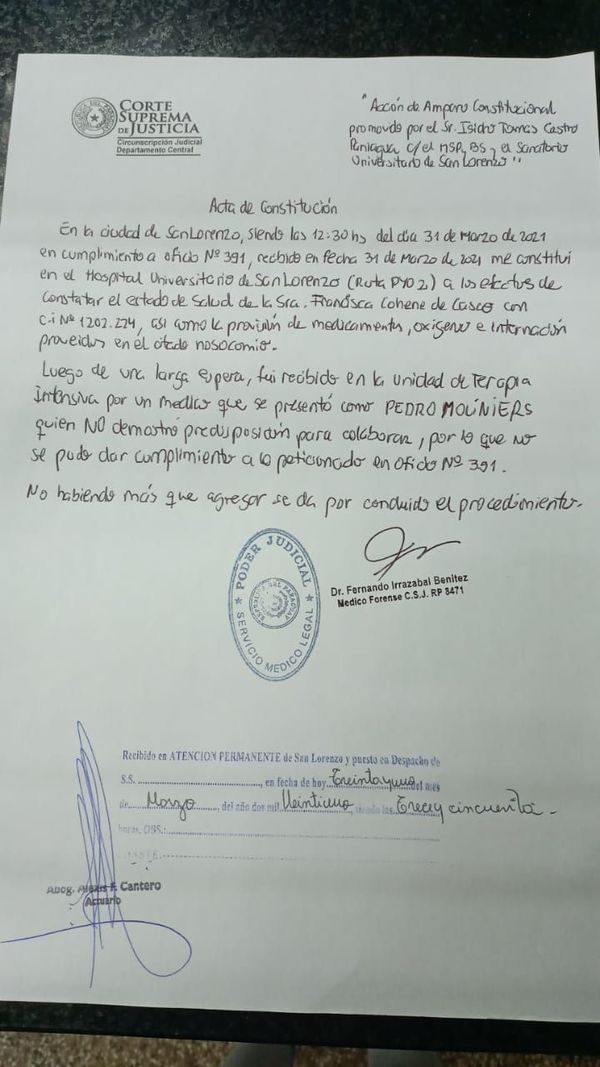 CORTE
SUPREMA
DE JUSTICIA
Circunscripción Judicial
Departamento Central
"Acción de Amparo Constitucional
promovido por el Sr. Isidro Tomas Castro
Paniagua c/ el MSP, BS y el Sanatorio
Universitario de San Lorenzo"
Acta de Constitución
En la ciudad de San Lorenzo, siendo las 12:30 hs del día 31 de Marzo de 2021
en cumplimiento a oficio Nº 391, recibido en fecha 31 de Marzo de 2021 me constituí
en el Hospital Universitario de San Lorenzo (Ruta PY02) a los efectos de
Constatar el estado de Salud de la Sra. Francisca Cohene de Casco con
C.i Nº 1202.274, así como la provisión de medicamentos, oxígeno e internación
proveidos en el citado nosocomio.
Luego de una larga espera, fui recibido en la unidad de Terapia
Intensiva por un medico que se presentó como PEDRO MOLINIERS
quien NO demostró predisposición para colaborar, por lo que no
se pudo dar cumplimiento a lo peticionado en oficio Nº 391.
No habiendo más que agregar se da por concluido el procedimiento.
PODER JUDICIAL
SERVICIO MEDICO LEGAL
Dr. Fernando Irrazabal Benitez
Medico Forense C.S.J. RP 8471
Recibido en ATENCION PERMANENTE de San Lorenzo y puesto en Despacho de
S.S. , en fecha de hoy Treinta y uno del mes
de Marzo , del año dos mil Veintiuno , siendo las Trece y cincuenta
horas. OBS.:
Abog. Alexis F. Cantero
Actuario